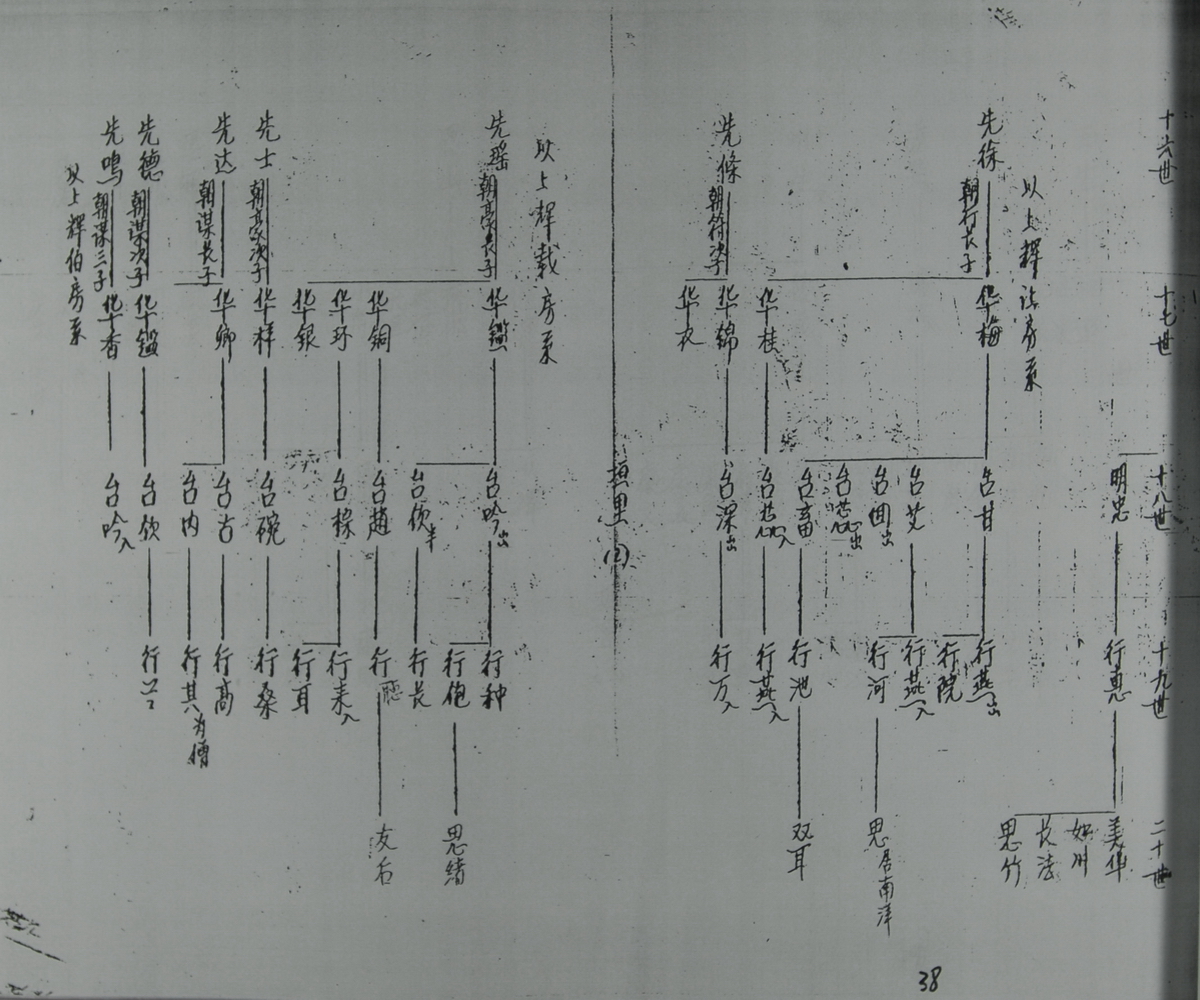 十六世
十七世
十八世
十九世
二十世
明忠
行惠
美华
如川
长法
思竹
以上辉 房系
先徐
朝行长子
华梅
台甘
行燕出
行院
台艾
行燕入
行河
思居南洋
台回出
台芸出
台畜
行池
双耳
华桂
台芸入
行燕入
先條
朝符次子
华锦
台深出
行万入
华衣
垣里
(2)
以上辉载房系
先瑶
朝豪长子
华鑑
台吟出
行种
行佌
思绪
台钦半
行长
华铜
台趙
行
友石
华环
台椽
行来入
行耳
华银
先士
朝豪次子
华样
台碗
行桑
先达
朝谋长子
华卿
台古
行高
台内
行其为僧
先德
朝谋次子
华鑑
台钦
行
先鸣
朝谋三子
华香
台吟入
以上辉伯房系
38